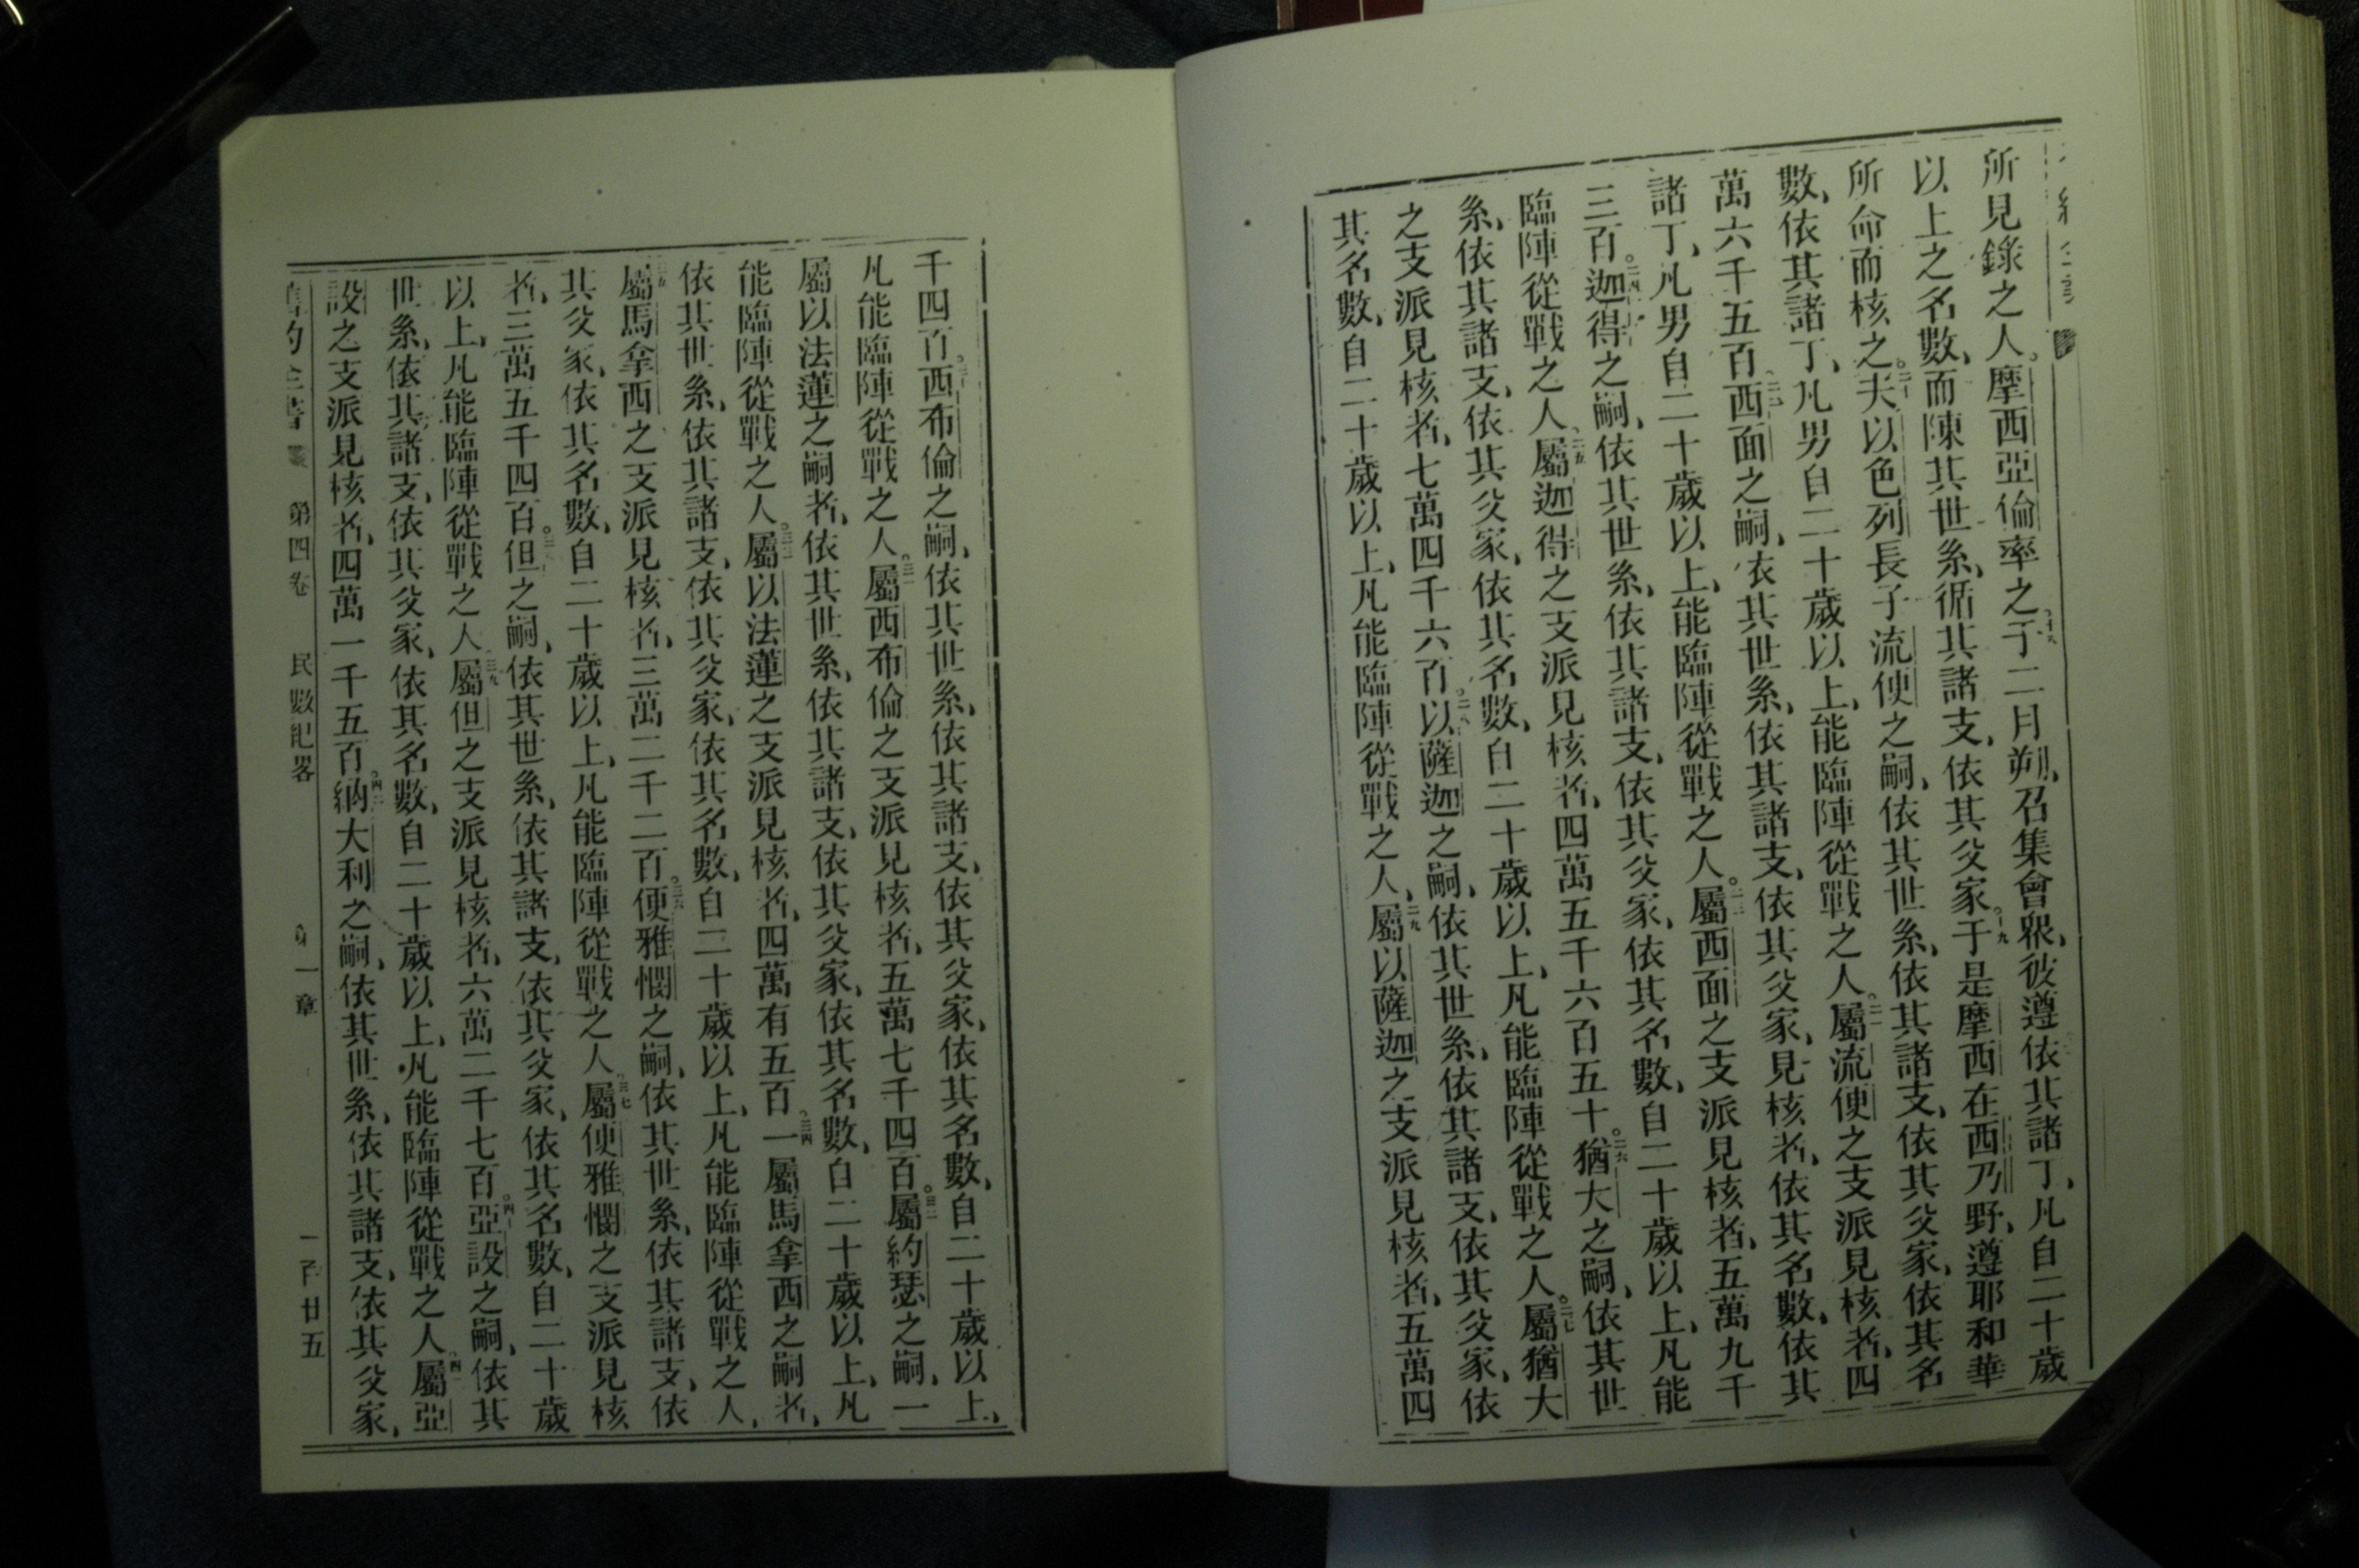 所見錄之人。摩西亞倫率之、十八于二月朔、召集會眾、彼遵依其諸丁、凡自二十歲
以上之名數、而陳其世系、循其諸支、依其父家。十九于是摩西在西乃野、遵耶和華
所命而核之。二十夫以色列長子流便之嗣、依其世系、依其諸支、依其父家、依其名
數、依其諸丁、凡男自二十歲以上、能臨陣從戰之人。二一屬流便之支派見核者、四
萬六千五百、二二西面之嗣、依其世系、依其諸支、依其父家、見核者、依其名數、依其
諸丁、凡男自二十歲以上、能臨陣從戰之人。二三屬西面之支派見核者、五萬九千
三百。二四迦得之嗣、依其世系、依其諸支、依其父家、依其名數、自二十歲以上、凡能
臨陣從戰之人、二五屬迦得之支派見核者、四萬五千六百五十。二六猶大之嗣、依其世
系、依其諸支、依其父家、依其名數、自二十歲以上、凡能臨陣從戰之人。二七屬猶大
之支派見核者、七萬四千六百。二八以薩迦之嗣、依其世系、依其諸支、依其父家、依
其名數、自二十歲以上、凡能臨陣從戰之人、二九屬以薩迦之支派見核者、五萬四
千四百。三十西布倫之嗣、依其世系、依其諸支、依其父家、依其名數、自二十歲以上、
凡能臨陣從戰之人。三一屬西布倫之支派見核者、五萬七千四百。三二屬約瑟之嗣、一
屬以法蓮之嗣者、依其世系、依其諸支、依其父家、依其名數、自二十歲以上、凡
能臨陣從戰之人。三三屬以法蓮之支派見核者、四萬有五百、三四一屬馬拿西之嗣者、
依其世系、依其諸支、依其父家、依其名數、自二十歲以上、凡能臨陣從戰之人、
三五屬馬拿西之支派見核者、三萬二千二百。三六便雅憫之嗣、依其世系、依其諸支、依
其父家、依其名數、自二十歲以上、凡能臨陣從戰之人、三七屬便雅憫之支派見核
者、三萬五千四百。三八但之嗣、依其世系、依其諸支、依其父家、依其名數、自二十歲
以上、凡能臨陣從戰之人、三九屬但之支派見核者、六萬二千七百。四十亞設之嗣、依其
世系、依其諸支、依其父家、依其名數、自二十歲以上、凡能臨陣從戰之人、四一屬亞
設之支派見核者、四萬一千五百。四二納大利之嗣、依其世系、依其諸支、依其父家、
舊約全書 第四卷 民數紀畧 第一章 一百廿五